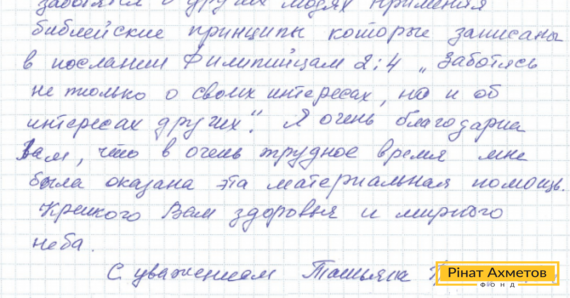 заботятся о других людях применяя
библейские принципы которые записаны
в послании Филипийцам 2:4 „Заботясь
не только о своих интересах, но и об
интересах других". Я очень благодарна
Вам, что в очень трудное время мне
была оказана эта материальная помощь.
Крепкого Вам здоровья и мирного
неба.
С уважением Татьяна
Рінат Ахметов
ФОНД